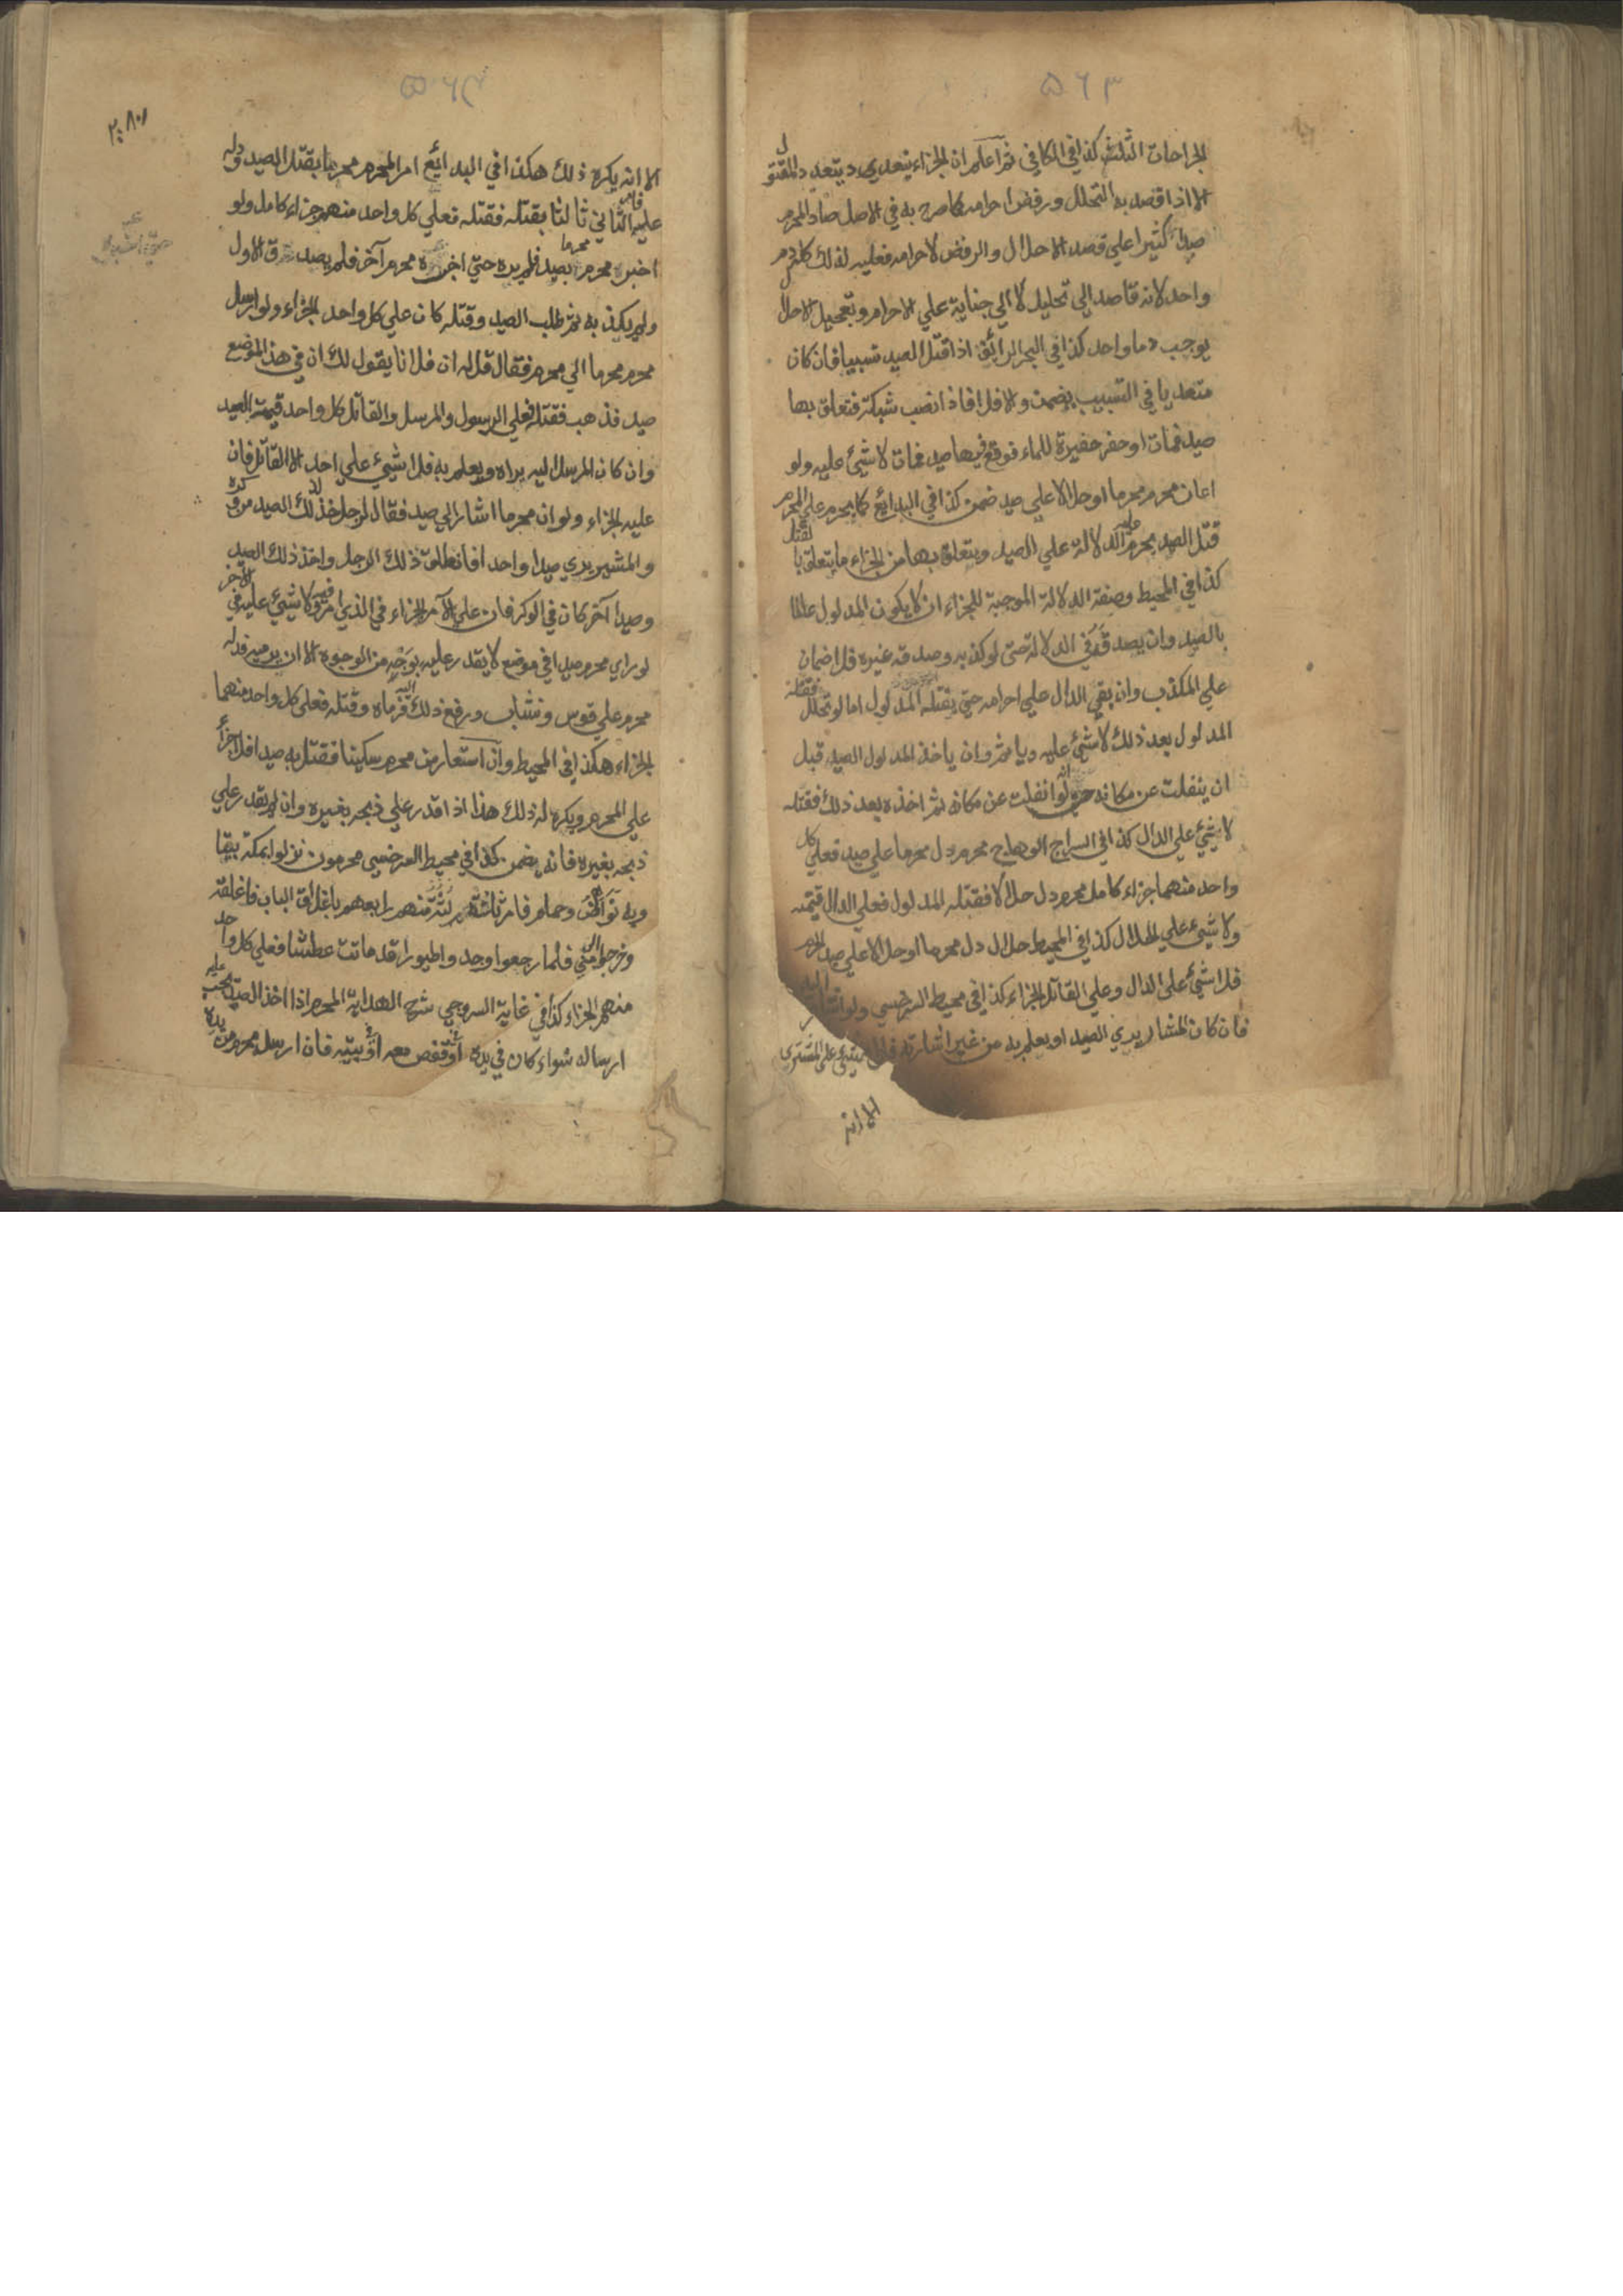 ٥٦٣
الجراحات الثلث كذا في الكافي ثم اعلم ان الجزاء يتعدد بتعدد المقتول
الا اذا قصد به التحلل ورفض احرامه كما صرح به في الاصل صاد المحرم
صيدا كثيرا علي قصد الاحلال والرفض لاحرامه فعليه لذلك كله دم
واحد لانه قاصد الي تحليل لا الي جناية علي الاحرام وتعجيل الاحلال
يوجب دما واحد كذا في البحر الرائق اذا قتل الصيد تسبيبا فان كان
متعديا في التسبيب يضمن والا فلا فاذا نصب شبكة فتعلق بها
صيد فمات او حفر حفيرة للماء فوقع فيها صيد فمات لا شئ عليه ولو
اعان محرم محرما او حلالا علي صيد ضمن كذا في البدائع كما يحرم علي المحرم
قتل الصيد يحرم عليه الدلالة علي الصيد ويتعلق بها من الجزاء ما يتعلق بالقتل
كذا في المحيط وصفة الدلالة الموجبة للجزاء ان لا يكون المدلول عالما
بالصيد وان يصدقه في الدلالة حتى لو كذبه وصدقه غيره فلا ضمان
علي المكذب وان بقي الدال علي احرامه حتي يقتله المدلول اما لو تحلل فقتله
المدلول بعد ذلك لا شئ عليه وياثم وان ياخذ المدلول الصيد قبل
ان ينفلت عن مكانه حتي لو انفلت عن مكانه ثم اخذه بعد ذلك فقتله
لا شئ علي الدال كذا في السراج الوهاج محرم دل محرما علي صيد فعلي كل
واحد منهما جزاء كامل محرم دل حلالا فقتله المدلول فعلي الدال قيمته
ولا شئ علي الحلال كذا في المحيط حلال دل محرما او حلالا علي صيد الحرم
فلا شئ علي الدال وعلي القاتل الجزاء كذا في محيط السرخسي ولو اشار اليه
فان كان المشار يدي الصيد او يعلم به من غير اشارته فلا شئ علي المشتري
الا انه
٥٦٤
الا انه يكره ذلك هكذا في البدائع امر المحرم محرما بقتل الصيد ودله
عليه فامر الثاني ثالثا بقتله فقتله فعلي كل واحد منهم جزاء كامل ولو
اخبر محرم محرما بصيد فلم يره حتي اخبره محرم آخر فلم يصدق الاول
ولم يكذبه ثم طلب الصيد وقتله كان علي كل واحد الجزاء ولو ارسل
محرم محرما الي محرم فقال قل له ان فلانا يقول لك ان في هذا الموضع
صيد فذهب فقتله فعلي الرسول والمرسل والقاتل كل واحد قيمة الصيد
وان كان المرسل اليه يراه ويعلم به فلا شئ علي احد الا القاتل فان
عليه الجزاء ولو ان محرما اشار الي صيد فقال لرجل خذ ذلك الصيد من وكره
والمشير يدي صيدا واحدا فانطلق ذلك الرجل واخذ ذلك الصيد
وصيدا آخر كان في الوكر فان علي الآمر الجزاء في الذي امر فيه ولا شئ عليه في الآخر
لو راي محرم صيدا في موضع لا يقدر عليه بوجه من الوجوه الا ان يرميه فدله
محرم علي قوس ونشاب ورفع ذلك اليه فرماه وقتله فعلي كل واحد منهما
الجزاء هكذا في المحيط وان استعار من محرم سكينا فقتل به صيدا فلا جزاء
علي المحرم ويكره له ذلك هذا اذا قدر علي ذبحه بغيره وان لم يقدر علي
ذبحه بغيره فانه يضمن كذا في محيط السرخسي محرمون نزلوا بمكة بيتا
وحمام فامر ثلثتهم منهم رابعهم باغلاق الباب فاغلقه
وخرجوا الي مني فلما رجعوا وجدوا طيورا قد ماتت عطشا فعلي كل واحد
منهم الجزاء كذا في غاية السروجي شرح الهداية المحرم اذا اخذ الصيد يجب عليه
ارساله سواء كان في يده او قفص معه او بيته فان ارسله محرم من يده